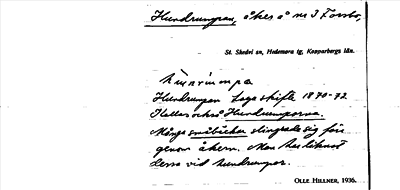 Hundrumpan, åker å nr 3 Forsbo,
St. Skedvi sn, Hedemora tg, Kopparbergs län.
hùnrùmpa
Hundrumpan Laga skifte 1870-72
Kallas också Hundrumporna.
Många småbäckar slingrade sig förr
genom åkern. Man har liknat
dessa vid hundrumpor.
OLLE HILLNER, 1936.